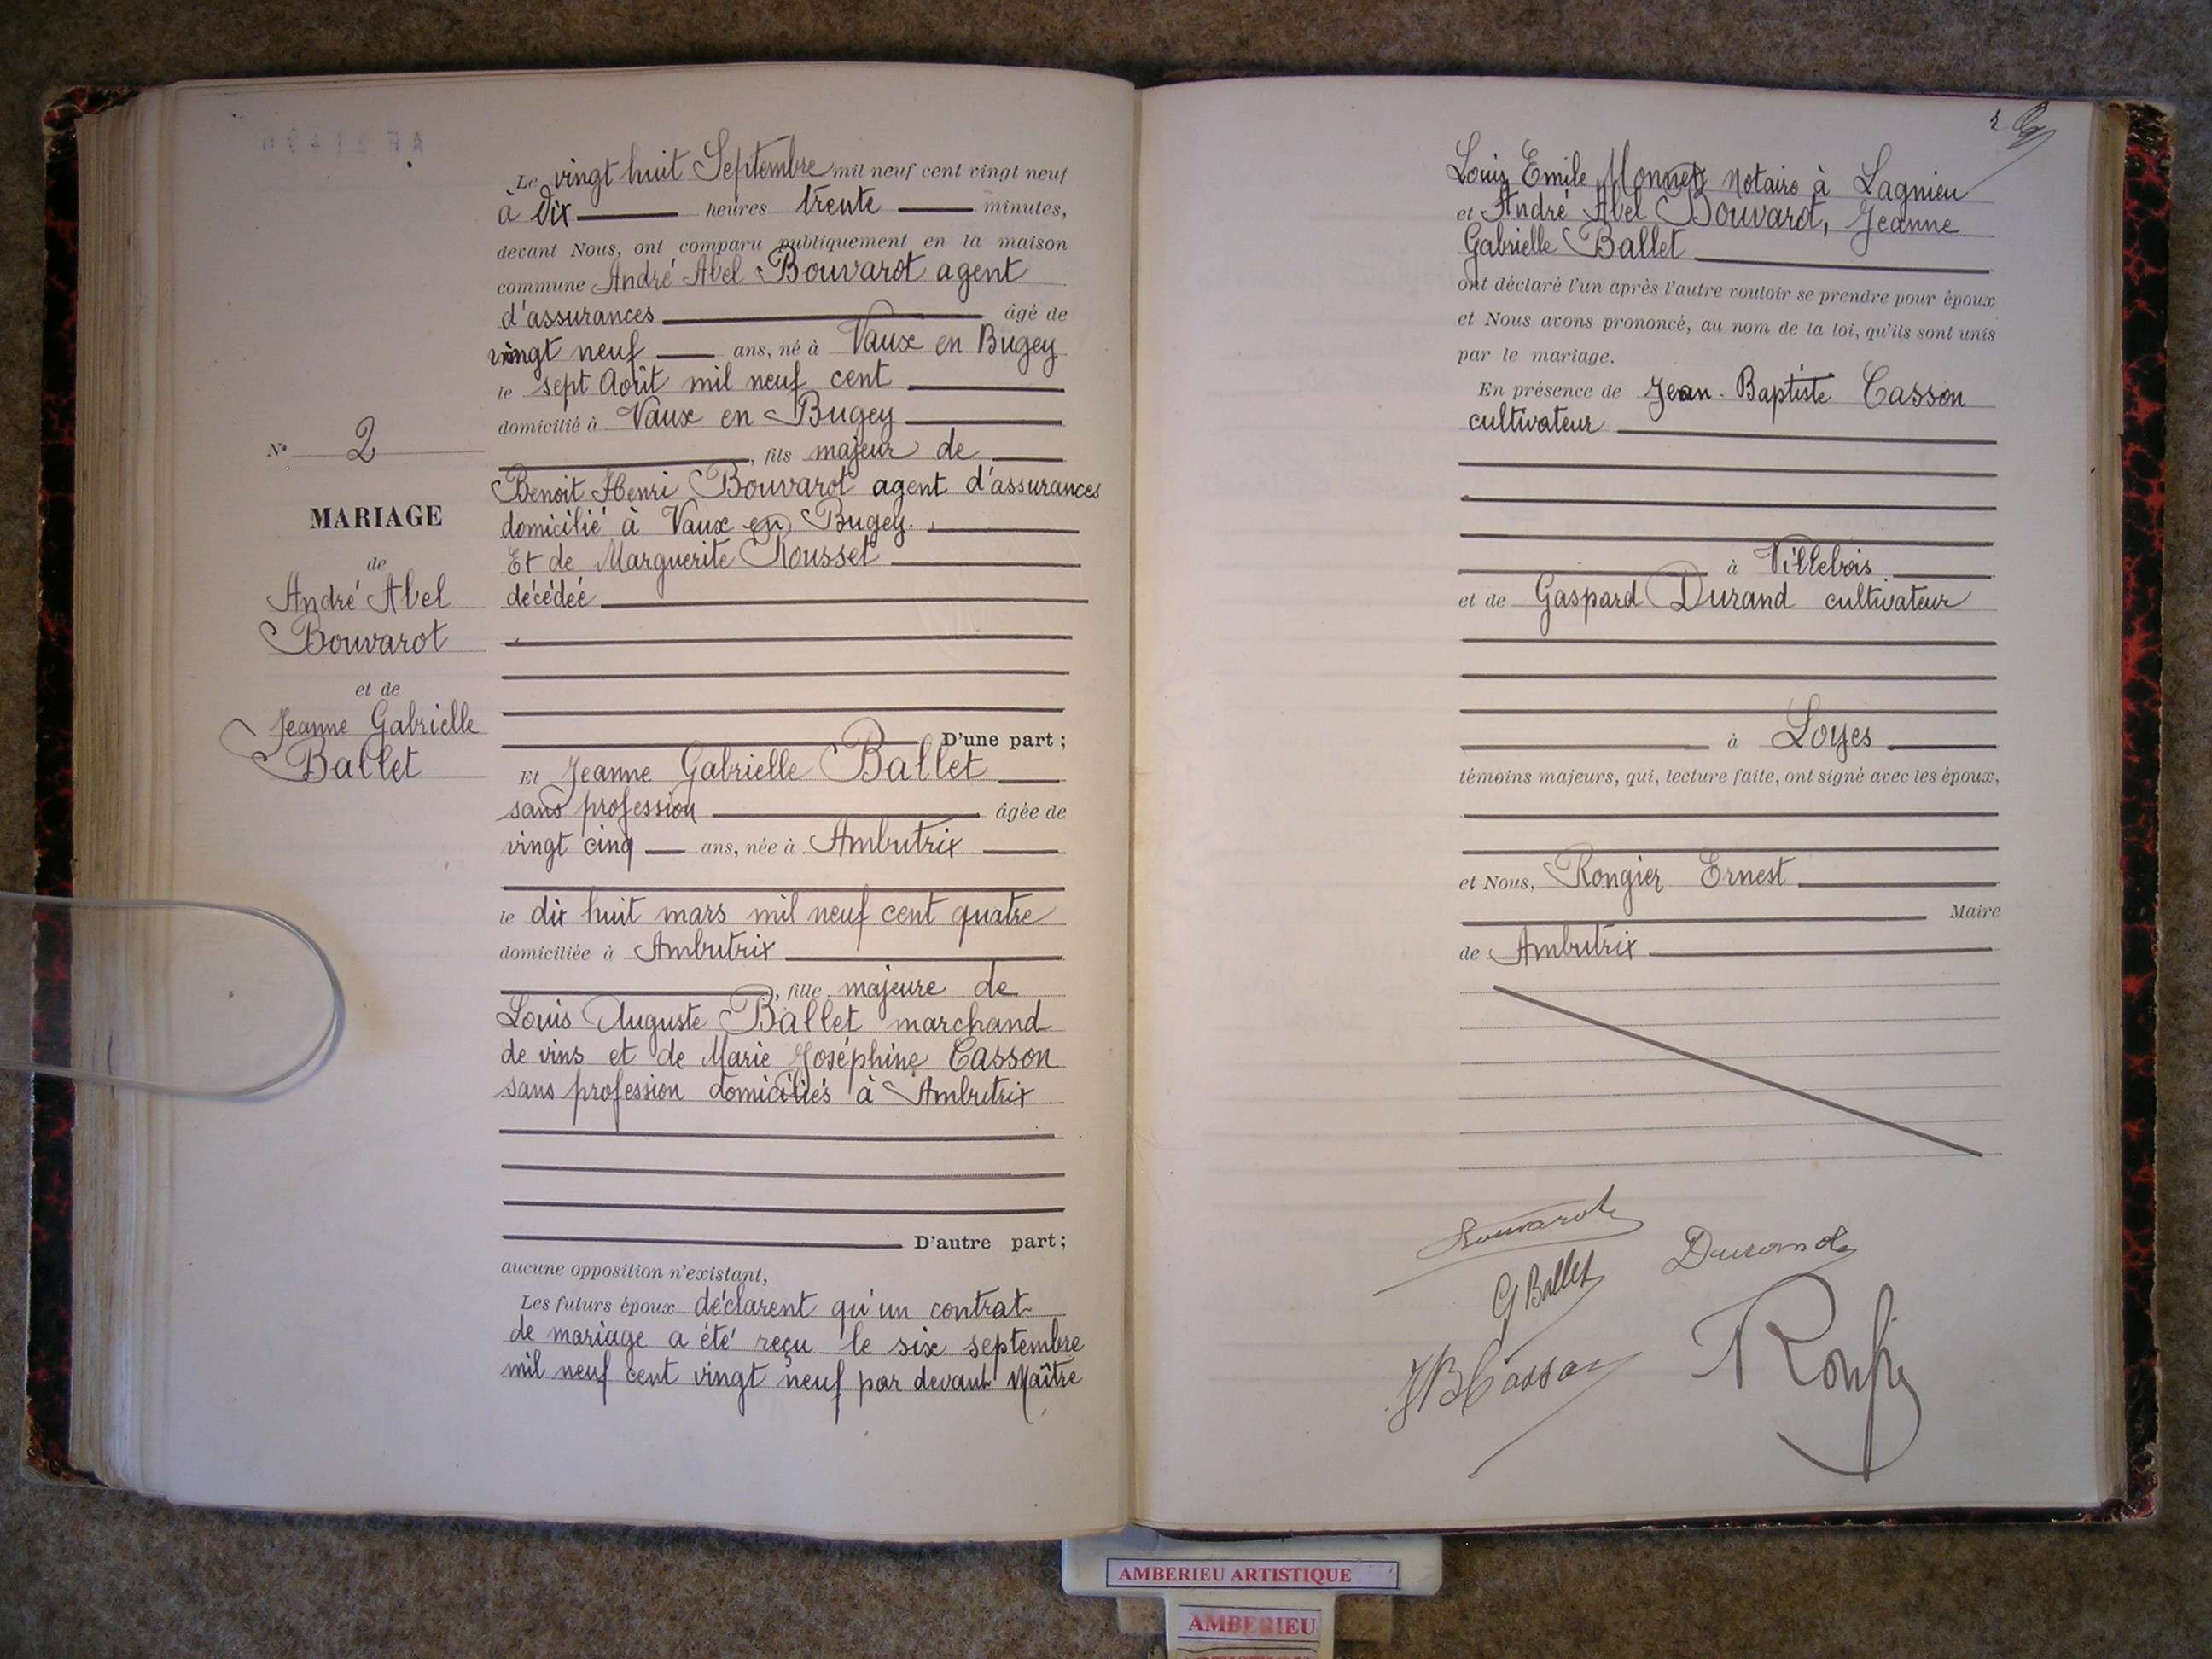 N° 2
MARIAGE
de
André Abel
Bouvarot
et de
Jeanne Gabrielle
Ballet
Le vingt huit Septembre mil neuf cent vingt neuf
à dix heures trente minutes,
devant Nous, ont comparu publiquement en la maison
commune André Abel Bouvarot agent
d'assurances âgé de
vingt neuf ans, né à Vaux en Bugey
le sept Août mil neuf cent
domicilié à Vaux en Bugey
, fils majeur de
Benoit Henri Bouvarot agent d'assurances
domicilié à Vaux en Bugey.
Et de Marguerite Rousset
décédée
D'une part ;
Et Jeanne Gabrielle Ballet
sans profession âgée de
vingt cinq ans, née à Ambutrix
le dix huit mars mil neuf cent quatre
domiciliée à Ambutrix
, fille majeure de
Louis Auguste Ballet marchand
de vins et de Marie Joséphine Casson
sans profession domiciliés à Ambutrix
D'autre part ;
aucune opposition n'existant,
Les futurs époux déclarent qu'un contrat
de mariage a été reçu le six septembre
mil neuf cent vingt neuf par devant Maître
2
Louis Emile Monnet Notaire à Lagnieu
et André Abel Bouvarot, Jeanne
Gabrielle Ballet
ont déclaré l'un après l'autre vouloir se prendre pour époux
et Nous avons prononcé, au nom de la loi, qu'ils sont unis
par le mariage.
En présence de Jean-Baptiste Casson
cultivateur
à Villebois
et de Gaspard Durand cultivateur
à Loyes
témoins majeurs, qui, lecture faite, ont signé avec les époux,
et Nous, Rongier Ernest
Maire
de Ambutrix
Bouvarot
Durand
G Ballet
JB Casson
AMBERIEU ARTISTIQUE
AMBERIEU
ARTISTIQUE